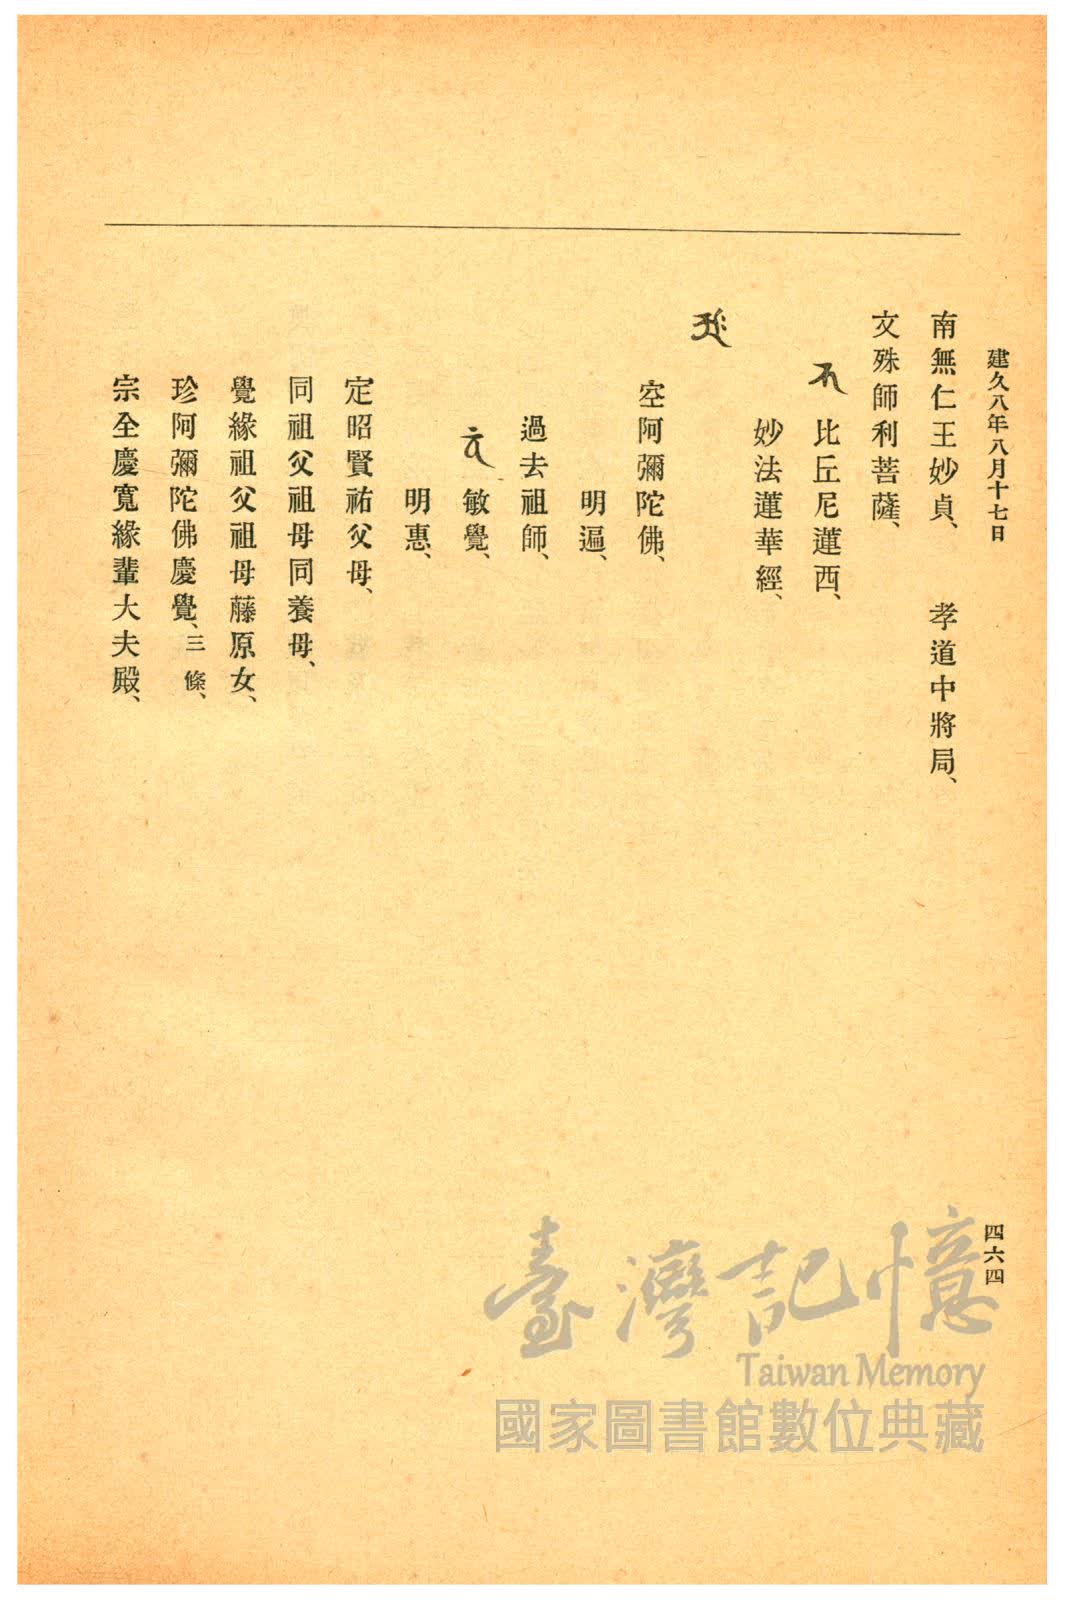 建久八年八月十七日
四六四
南無仁王妙貞、　孝道中將局、
文殊師利菩薩、
比丘尼蓮西、
妙法蓮華經、
空阿彌陀佛、
明遍、
過去祖師、
敏覺、
明惠、
定昭賢祐父母、
同祖父祖母同養母、
覺緣祖父祖母藤原女、
珍阿彌陀佛慶覺、三條、
宗全慶寬緣輩大夫殿、
臺灣記憶
Taiwan Memory
國家圖書館數位典藏